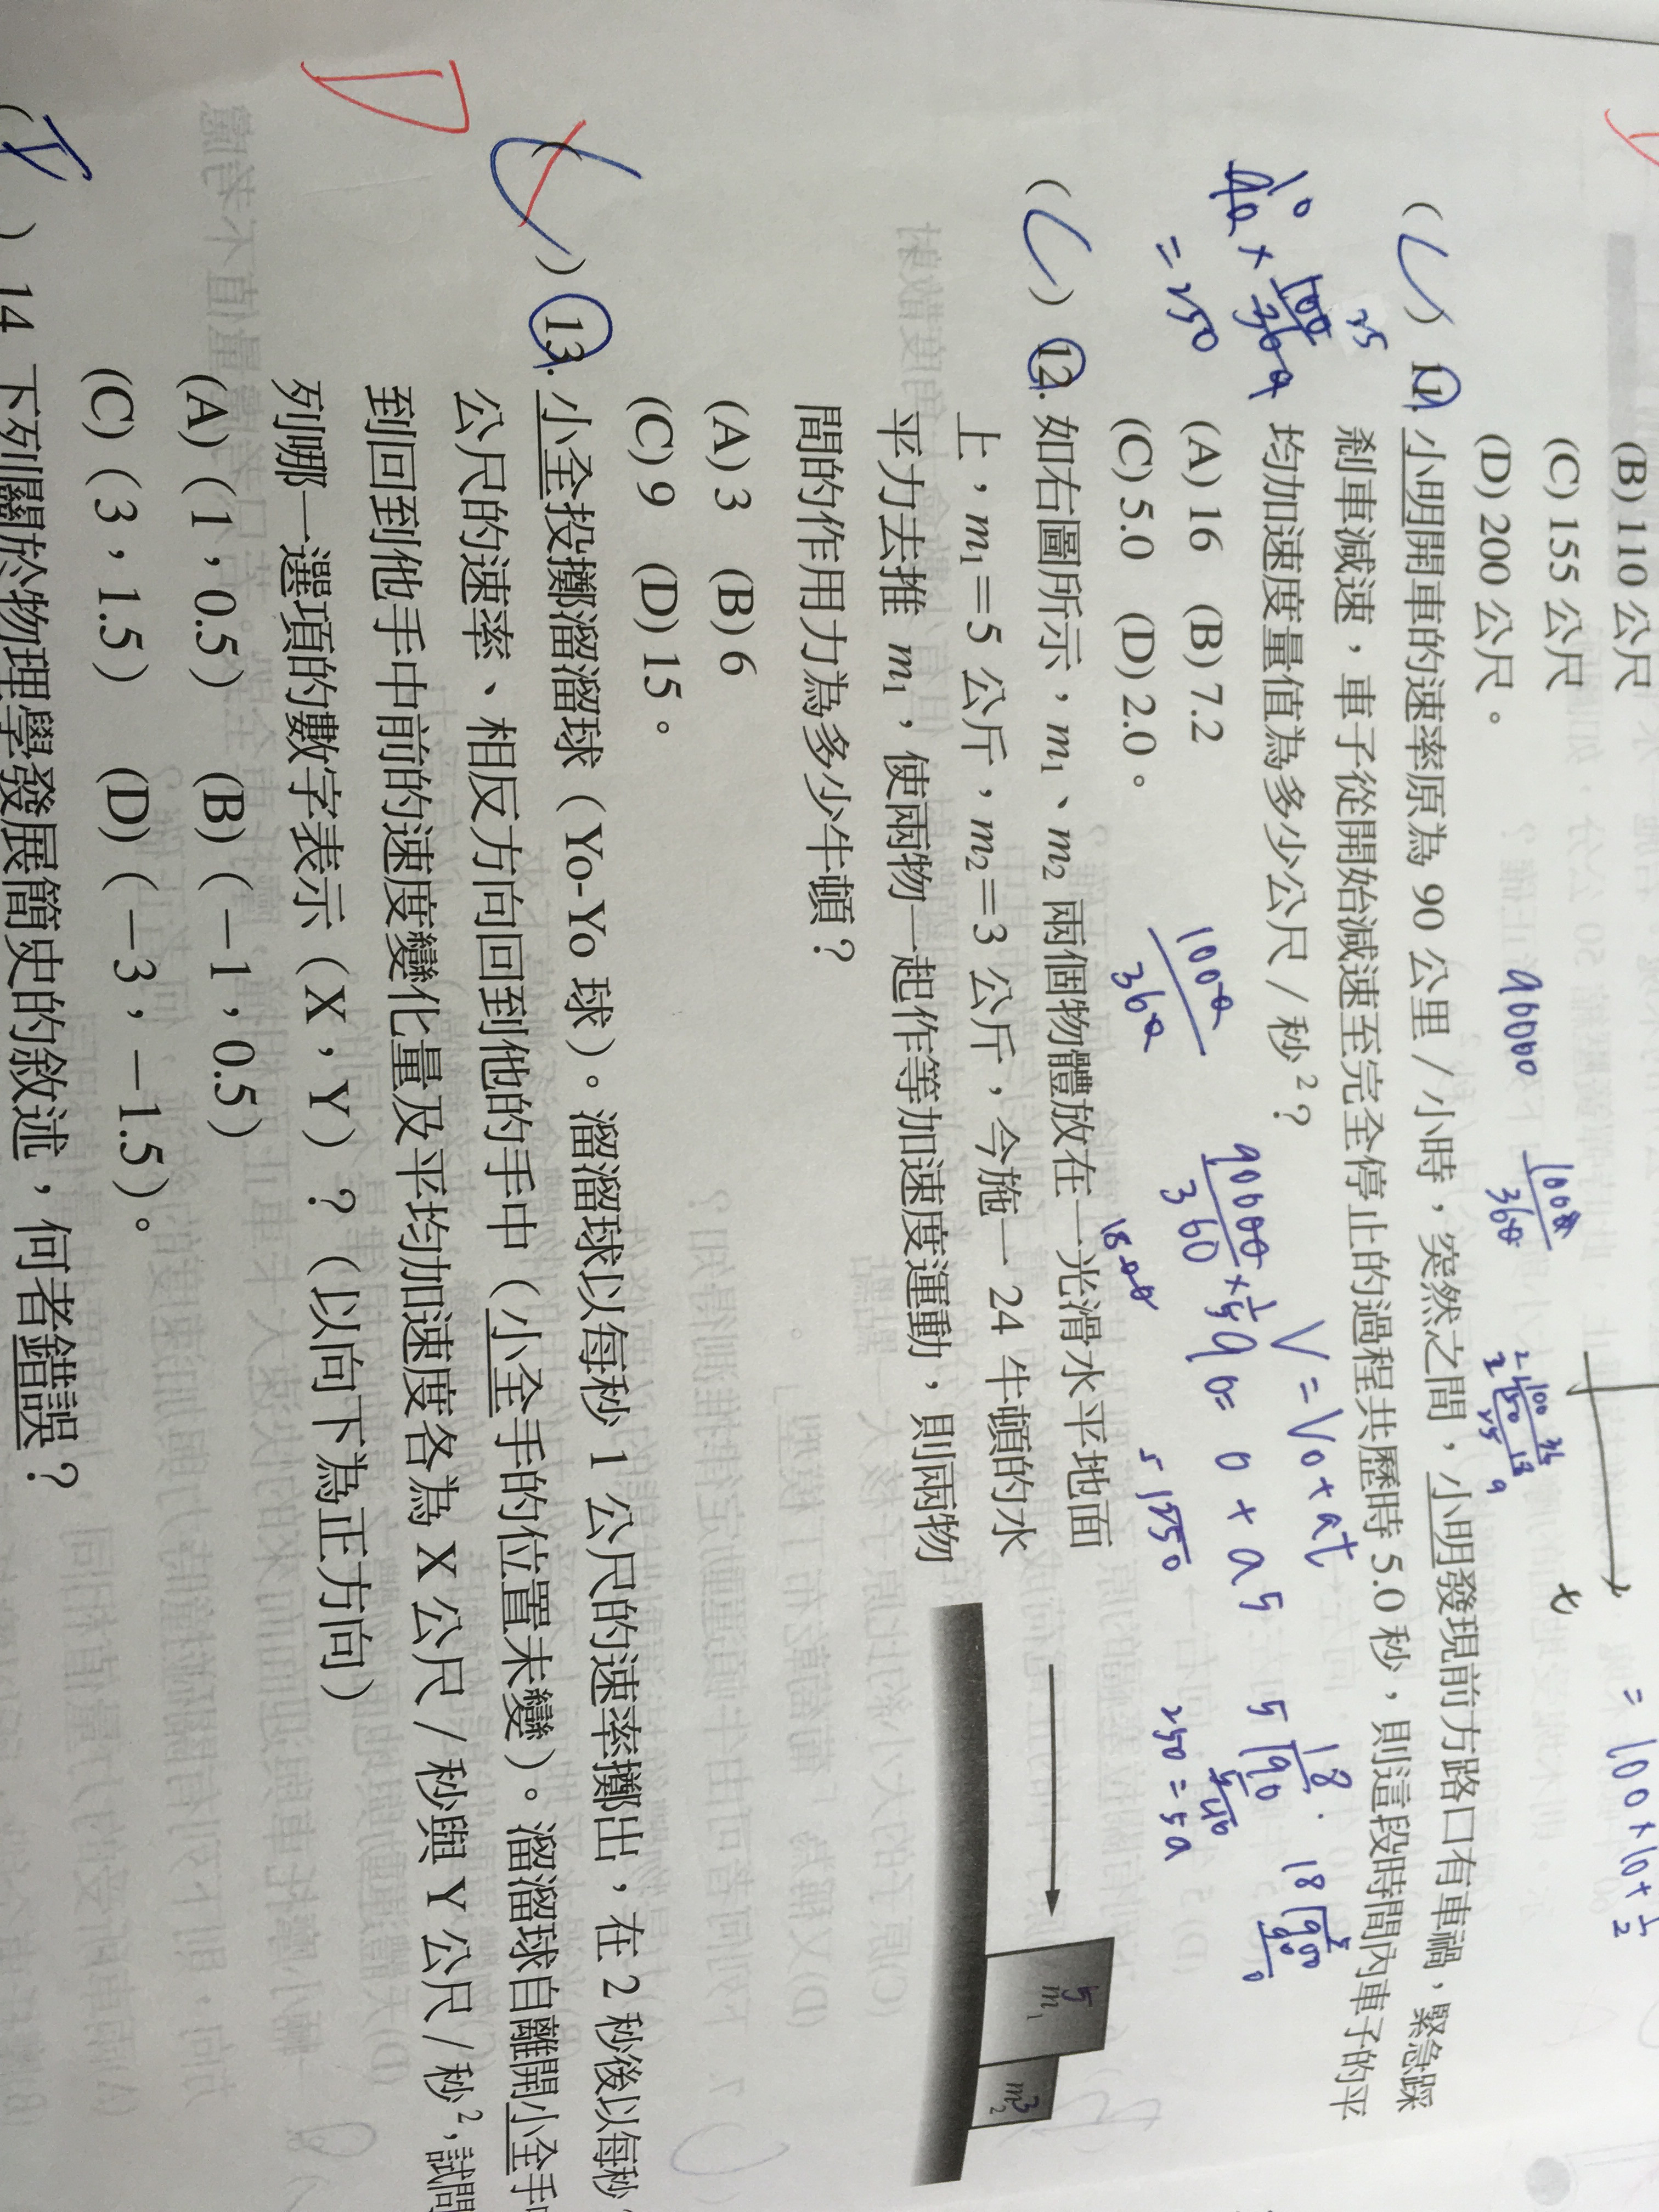 (B) 110 公尺
(C) 155 公尺
(D) 200 公尺。
= 100×10+ 1/2
t
90000
(C) 11. 小明開車的速率原為 90 公里/小時,突然之間,小明發現前方路口有車禍,緊急踩
剎車減速,車子從開始減速至完全停止的過程共歷時 5.0 秒,則這段時間內車子的平
均加速度量值為多少公尺/秒²?
V = V₀ + at
90 = 0 + a5
(A) 16 (B) 7.2
(C) 5.0 (D) 2.0。
= 250
250 = 5a
(C) 12. 如右圖所示,m₁、m₂ 兩個物體放在一光滑水平地面
上,m₁=5 公斤,m₂=3 公斤,今施一 24 牛頓的水
平力去推 m₁,使兩物一起作等加速度運動,則兩物
間的作用力為多少牛頓?
5
m₁
3
m₂
(A) 3 (B) 6
(C) 9 (D) 15。
D
(C) 13. 小全投擲溜溜球(Yo-Yo 球)。溜溜球以每秒 1 公尺的速率擲出,在 2 秒後以每秒
公尺的速率、相反方向回到他的手中(小全手的位置未變)。溜溜球自離開小全手
到回到他手中前的速度變化量及平均加速度各為 X 公尺/秒與 Y 公尺/秒²,試問
列哪一選項的數字表示(X,Y)?(以向下為正方向)
(A)(1,0.5) (B)(-1,0.5)
(C)(3,1.5) (D)(-3,-1.5)。
) 14 下列關於物理學發展簡史的敘述,何者錯誤?